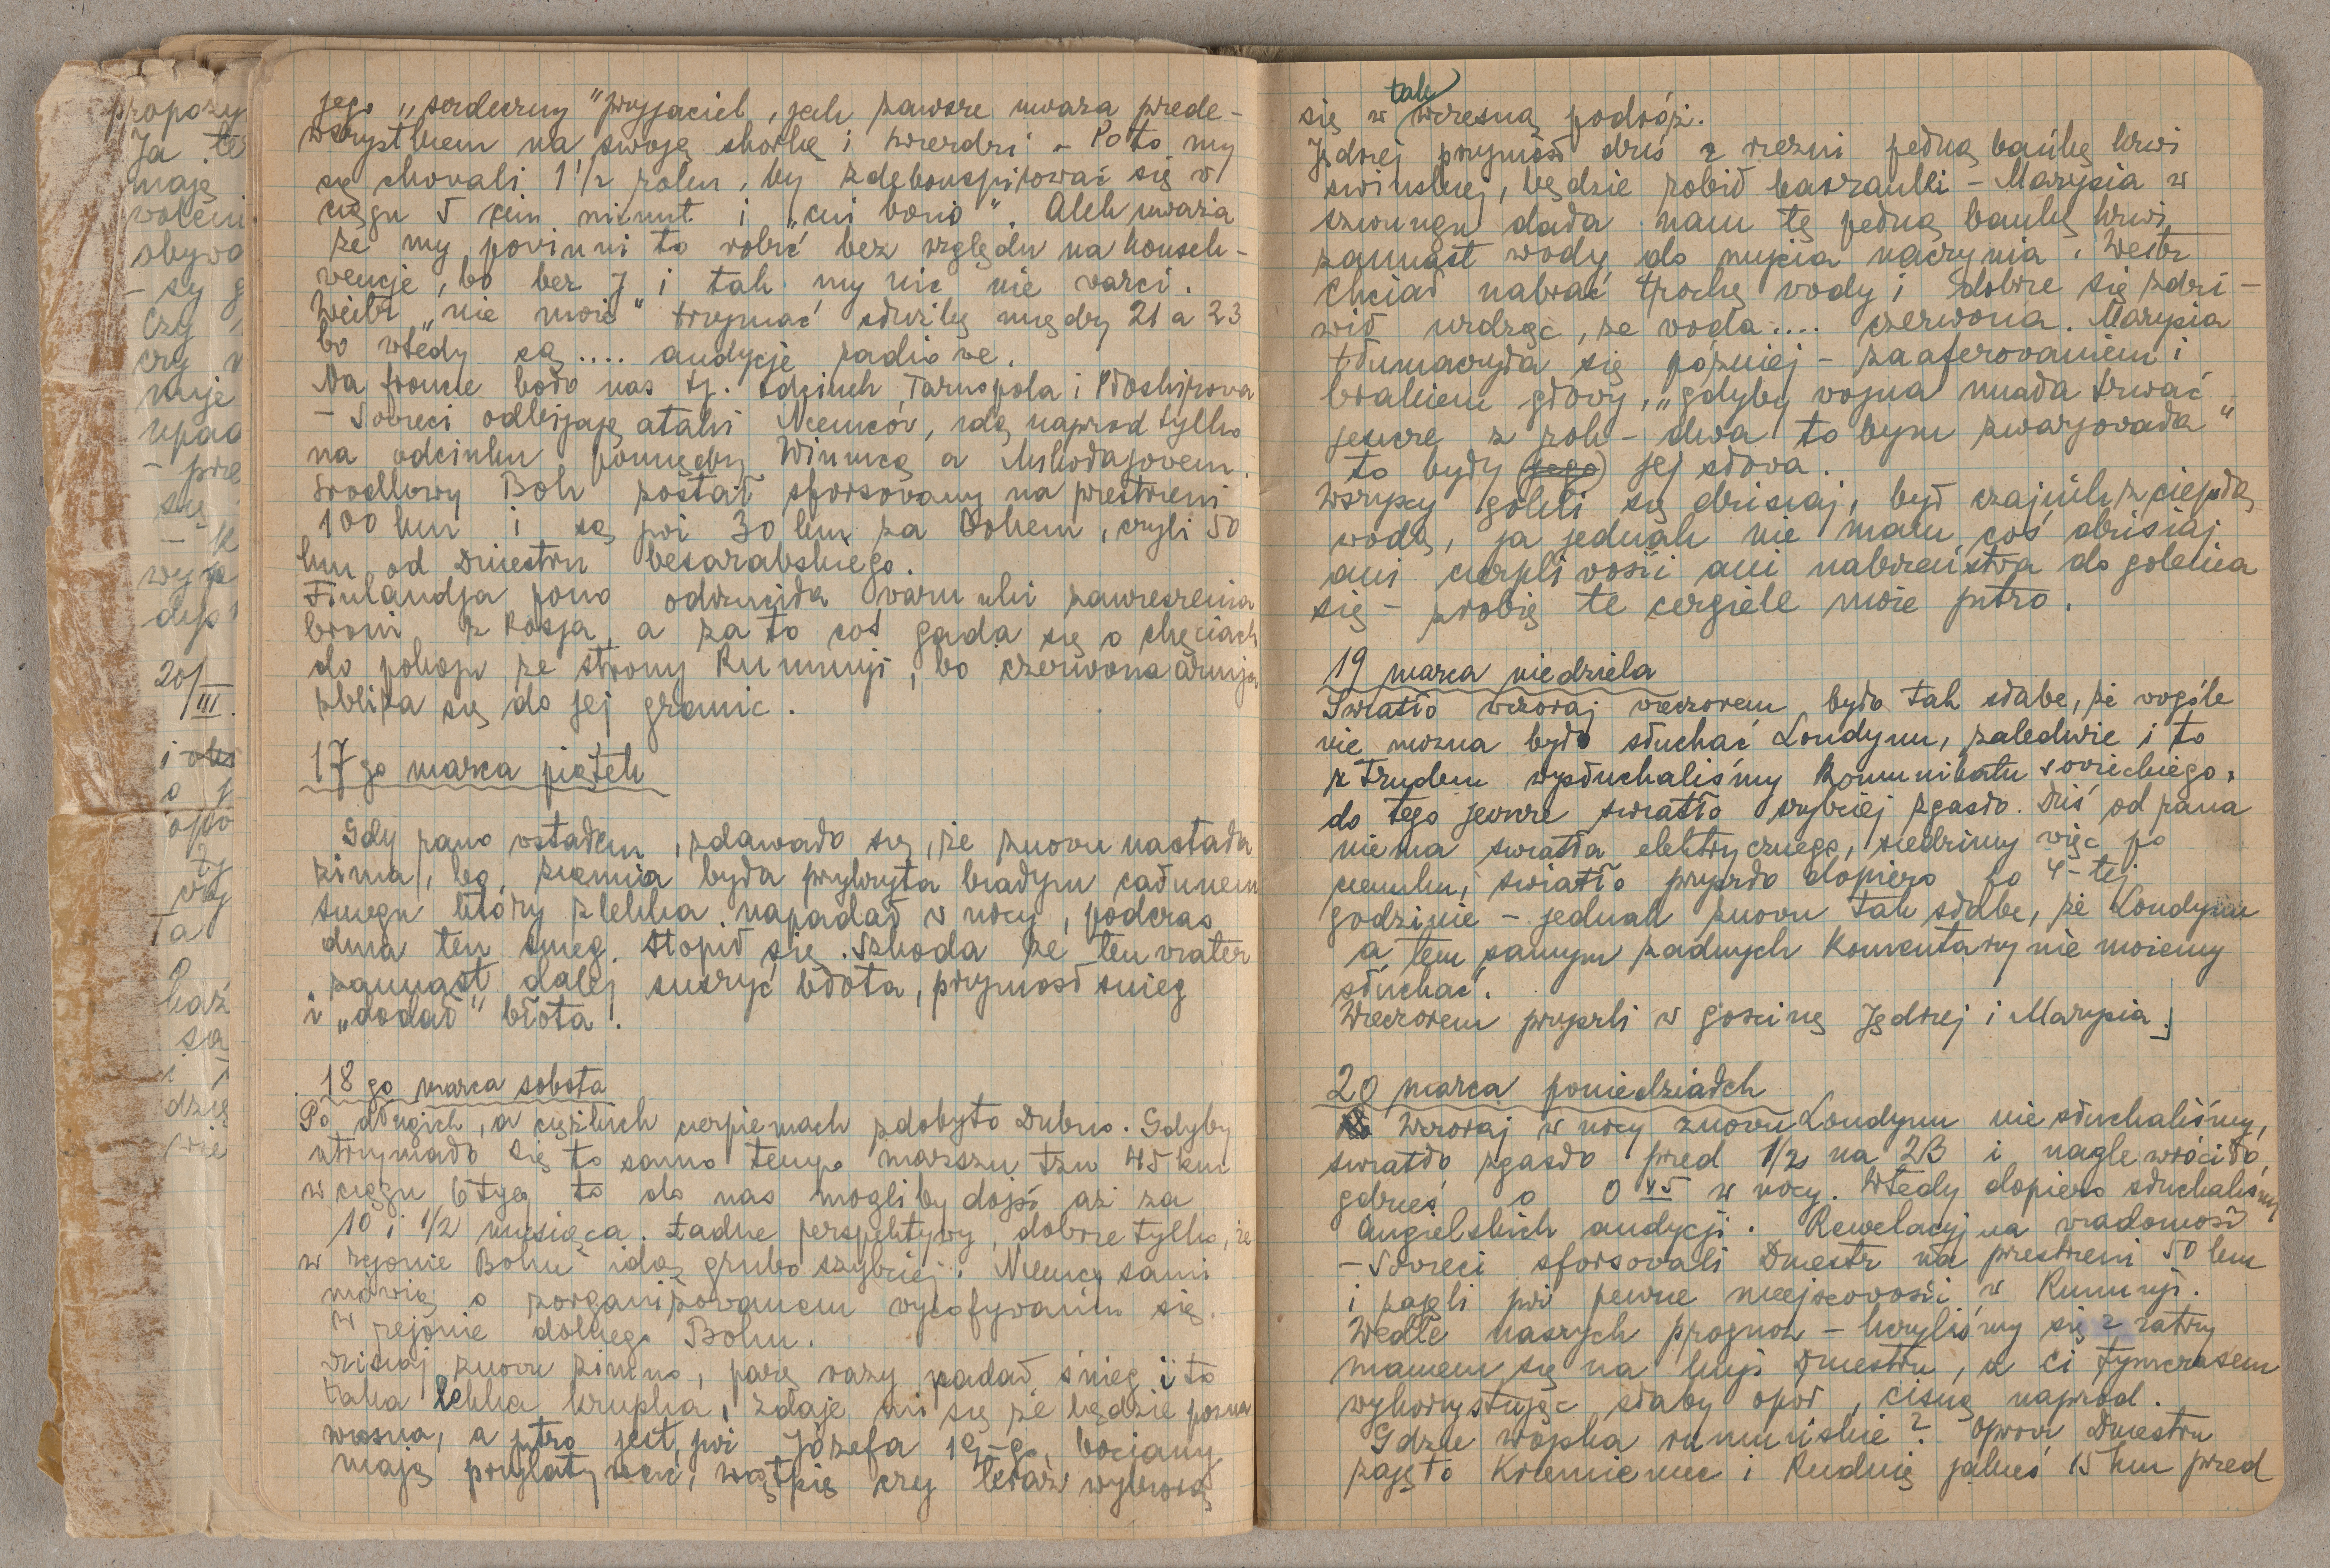 propozy
Ja te
maję
woleni
obywa
- są g
czy
czy w
muje
upad
- prze
się
dys
20/III.
i
o j
opo
ty
Ta
baż
są
dzię
jego „serdeczny" przyjaciel, jak zawsze uważa prede-
wszystkiem na swoję skorkę i twierdzi - Po to my
się chowali 1 1/2 roku, by zdekonspirować się w
ciągu 5 ciu minut i „cui bono". Alek uważa
że my powinni to robić bez względu na konsek-
wencje, bo bez J i tak my nic nie warci.
Weibr „nie może" trzymać służbę między 21 a 23
bo wtedy są .... audycje radiowe.
Na froncie koło nas tj. odcinek Tarnopola i Płoskirowa
- Sowieci odbijaję ataki Niemców, idą naprzod tylko
na odcinku pomiędzy Winnicą a Mikołajowem.
Srodkowy Boh został sforsowany na przestrzeni
100 km i są już 30 km za Bohem, czyli 50
km od Dniestru besarabskiego.
Finlandja pono odrzuciła warunki zawieszenia
broni z Rosja, a za to coś gada się o chęciach
do pokoju ze strony Rumunji, bo czerwona armja
zbliża się do jej granic.
17 go marca piątek
Gdy rano wstałem, zdawało się, że znowu nastała
zima, bo ziemia była przykryta białym całunem
śniegu który z lekka napadał w nocy, podczas
dnia ten snieg stopił się. Szkoda że ten wiater
zamiast dalej suszyć błota, przyniosł snieg
i „dodał" błota.
18 go marca sobota
Po długich, a ciężkich cierpieniach zdobyto Dubno. Gdyby
utrzymało się to samo tempo marszu tzn 45 km
w ciągu 6 tyg to do nas mogliby dojść aż za
10 i 1/2 miesiąca. Ładne perspektywy, dobrze tylko, że
w rejonie Bohu idą grubo szybciej. Niemcy sami
mówią o zorganizowanem wycofywaniu się
w rejonie dolnego Bohu.
Dzisiaj znowu zimno, parę razy padał śnieg i to
taka lekka krupka, zdaje mi się że będzie pozna
wiosna, a jutro jest już Józefa 19-go bociany
maję przylatywać, wątpię czy teraz wybiorą
tak
się w wczesną podróż.
Jędrzej przyniosł dzis z rzezni jedną bańkę krwi
swinskiej, będzie robił kaszanki - Marysia w
szwungu dała nam tę jedną bańkę krwi
zamiast wody do mycia naczynia. Weibr
chciał nabrać trochę wody i dobrze się zdzi-
wił widząc, że woda .... czerwona. Marysia
tłumaczyła się później - zaaferowaniem i
brakiem głowy, „gdyby wojna miała trwać
jeszcze z rok - dwa to bym zwarjowała"
to były (jego) jej słowa.
Wszyscy golili się dzisiaj, był czajnik z ciepłą
wodą, ja jednak nie mam coś dzisiaj
ani cierpliwości ani nabożeństwa do golenia
się - zrobię te cergiele może jutro.
19 marca niedziela
Swiatło wczoraj wieczorem było tak słabe, że wogóle
nie można było słuchać Londynu, zaledwie i to
z trudem wysłuchaliśmy Komunikatu sowieckiego,
do tego jeszcze swiatło szybciej zgasło. Dziś od rana
niema swiatła elektrycznego, siedzimy więc po
ciemku, swiatło przyszło dopiero po 4-tej
godzinie - jednak znowu tak słabe, że Londynu
a tem samym zadnych Komentarzy nie możemy
słuchać.
Wieczorem przyszli w goscinę Jędrzej i Marysia.
20 marca poniedziałek
Wczoraj w nocy znowu Londynu nie słuchaliśmy,
swiatło zgasło przed 1/2 na 23 i nagle wróciło
gdzieś o 0 45 w nocy. Wtedy dopiero słuchaliśmy
Angielskich audycji. Rewelacyjna wiadomość
- Sowieci sforsovali Dniestr na przestrzeni 50 km
i zajęli już pewne miejscowości w Rumunji.
Wedle naszych prognoz - liczyliśmy się z zatrzy
maniem się na linji Dniestru, a ci tymczasem
wykorzystując słaby opór, cisną naprzod.
Gdzie wojska rumuńskie? Oprócz Dniestru
zajęto Krzemieniec i Rudnię jakieś 15 km przed